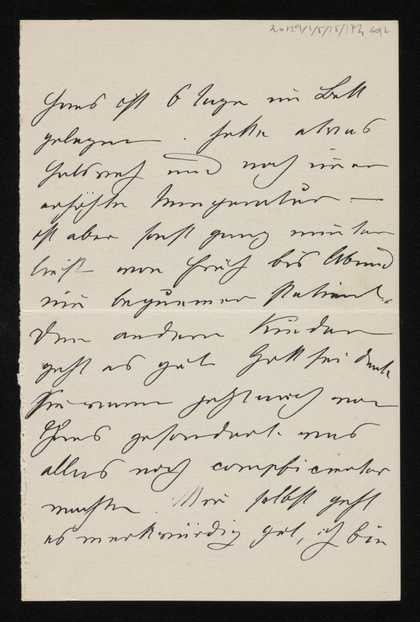 Hans ist 6 Tage im Bett
gelegen. hatte etwas
Halsweh und noch immer
erhöhte Temperatur —
ist aber sonst ganz munter
liest von Früh bis Abend
ein bequemer Patient.
Den andern Kindern
geht es gut Gott sei Dank
Sie waren jetzt auch von
Hans gesondert. was
alles noch complicierter
machte. Mir selbst geht
es merkwürdig gut, ich bin